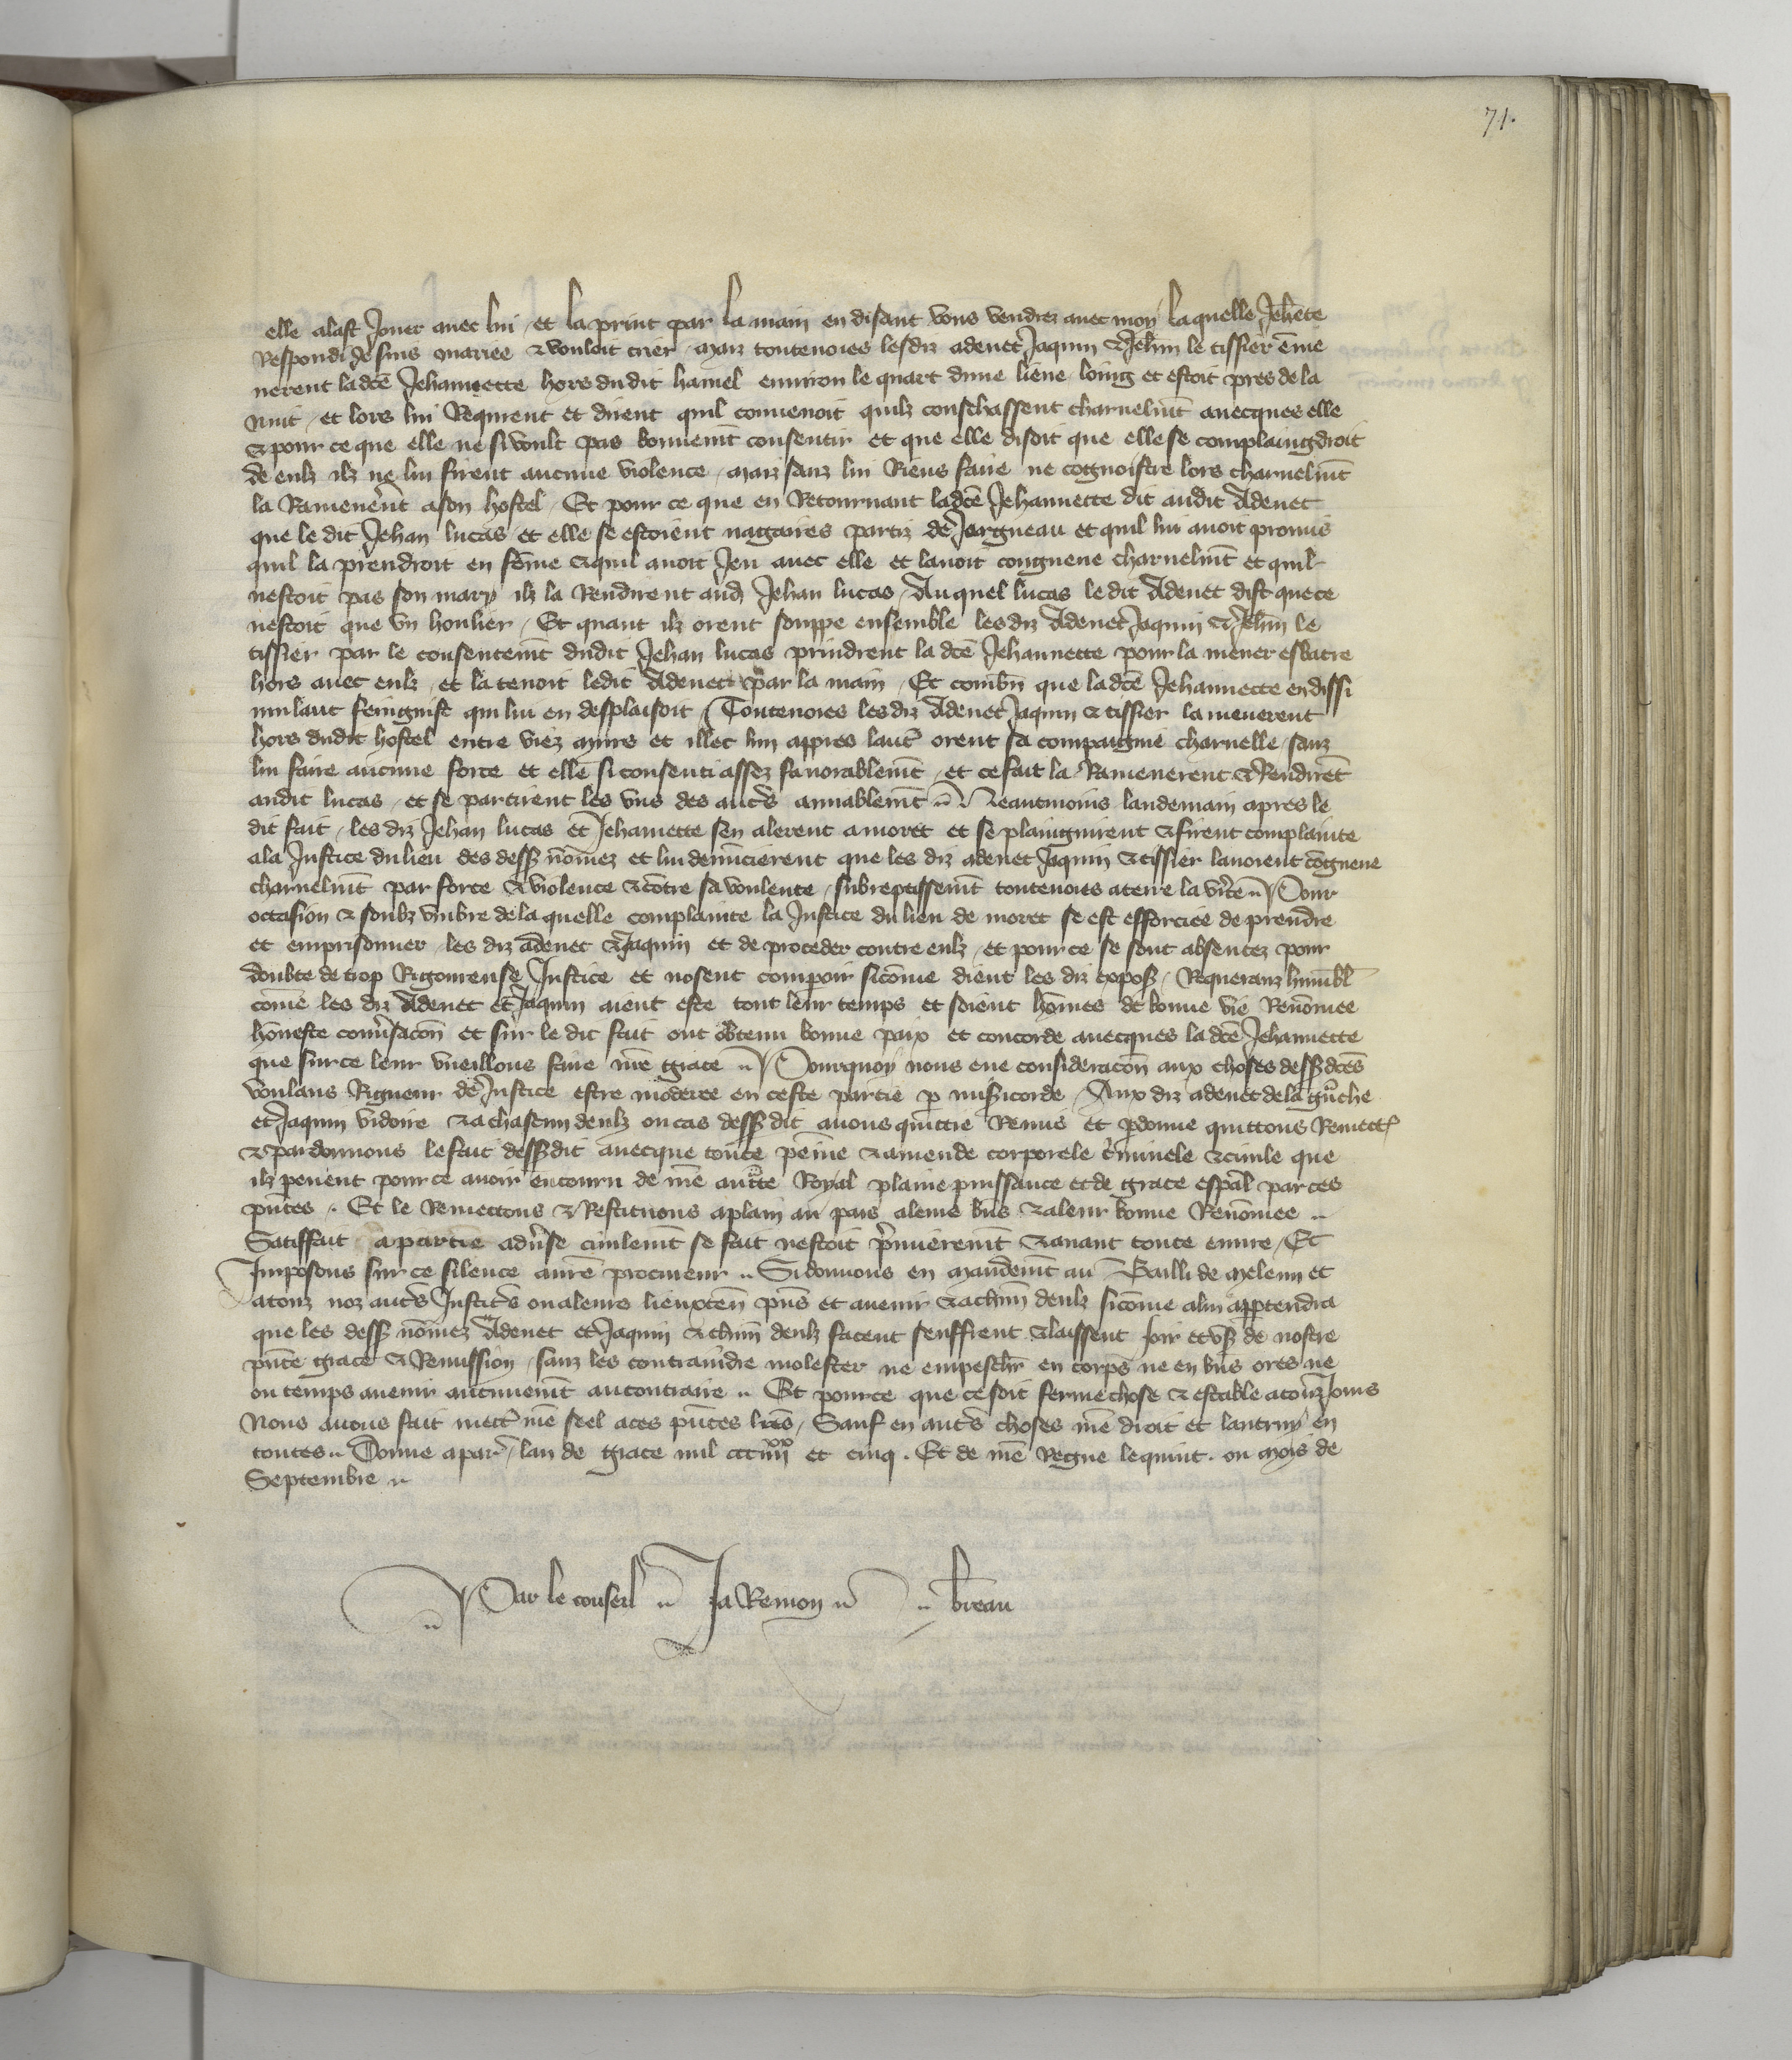 71.
elle alast Jouer auec lui / et la print par la main en disant vous vendrez auec moy / laquelle Jehete
Respondi Je suis mariee & vouloit crier / maiz toutevoies lesdiz adenet Jaquin & Jehin le tissier eme
nerent ladce Jehannette hors dudit hamel enuiron le quart dune lieue loing et estoit pres de la
nuit / et lors lui Requirent et dirent quil conuenoit quilz couschassent charnelmt auecques elle
& pour ce que elle ne si voult pas bonnemt consentir et que elle disoit que elle se complaingdroit
de eulz ilz ne lui firent aucune violence / maiz sanz lui Riens faire ne cognoistre lors charnelmt
la Ramenerent a son hostel / Et pour ce que en Retournant ladce Jehannette dit audit Adenet
que le dit Jehan lucas et elle se estoient nagaires partiz de Jargueau et quil lui auoit promis
quil la prendroit en feme & quil auoit Jeu auec elle et lauoit congneue charnelmt et quil
nestoit pas son mary ilz la Rendirent aud Jehan lucas / Auquel lucas le dit Adenet dist que ce
nestoit que vn houlier / Et quant ilz orent souppe ensemble les diz Adenet Jaquin & Jehin le
tissier par le consentemt dudit Jehan lucas prindrent la dce Jehannette pour la mener esbatre
hors auec eulz / et la tenoit ledit Adenet par la main / Et combn que ladce Jehannette en dissi
mulant feingnist qui lui en desplaisoit / Toutevoies les diz Adenet Jaquin & tissier la menerent
hors dudit hostel entre viez murs et illec lun apres laut orent sa compaignie charnelle / sanz
lui faire aucune force et elle si consenti assez fauorablemt / et ce fait la Ramenerent & Rendiret
audit lucas / et se partirent les vns des autrs amiablemt .. Neantmoins landemain apres le
dit fait / les diz Jehan lucas et Jehannette sen alerent a moret et se plaingnirent & firent complainte
ala Justice du lieu des dess nomez et lui denuncierent que les diz adenet Jaquin & tissier lauoient cogneue
charnelmt par force & violence & contre sa voulente / subreptissemt toutevoies a teire la vite .. Pour
occasion & soubz vmbre de la quelle complainte la Justice du lieu de moret se est efforciee de prendre
et emprisonner les diz adenet & Jaquin et de proceder contre eulz / et pour ce se sont absentez pour
doubte de trop Rigoureuse Justice et nosent comparoir sicome dient les diz expos / Requeranz humbl
come les diz Adenet et Jaquin aient este tout leur temps et soient homes de bonne vie Renomee
honeste conusacon et sur le dit fait ont obtenu bonne paix et concorde auecques la dce Jehannette
que sur ce leur vueillons faire nre grace .. Pourquoy nous eue consideracon aux choses dess dces
voulans Rigueur de Justice estre moderee en ceste partie p misicorde / Aux diz adenet de la guche
et Jaquin vidoire & a chascun deulz ou cas dess dit auons quittie Remis et pdonne quittons Remett
& pardonnons le fait dessdit auecque toute peine & amende corporele criminele & ciuile que
ilz peuent pour ce auoir encouru de nre autte Royal plaine puissance et de grace espal par ces
pntes . Et le Remettons & Restituons a plain au pais a leurs bns & a leur bonne Renomee ..
Satiffait a partie aduse ciuilemt se fait nestoit premierement & auant toute euure / Et
Imposons sur ce silence a nre procureur .. Si donnons en mandemt au Bailli de meleun et
a touz noz autrs Justicrs ou a leurs lieuxten pns et auenir & a chun deulz sicome a lui appartendra
que les dess nomez Adenet et Jaquin & chun deulz facent seuffrent & laissent Joir et vs de nostre
pnte grace & Remission / sanz les contraindre molester ne empeschr en corps ne en bns ores ne
ou temps auenir aucunemt au contraire .. Et pour ce que ce soit ferme chose & estable a touz Jours
Nous auons fait mett nre seel a ces pntes lres / Sauf en autrs choses nre droit et lautruy en
toutes .. Donne a par / lan de grace mil ccciiiixx et cinq . Et de nre Regne le quint . ou mois de
Septembre ..
Par le conseil .. Ja Remon .. .. breau